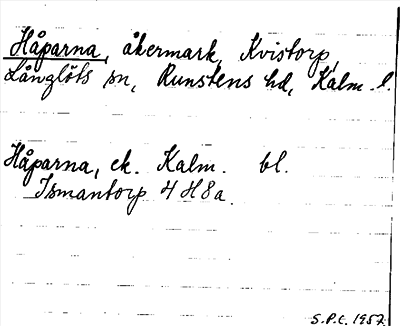 Håparna, åkermark, Kvistorp,
Långlöts sn, Runstens hd, Kalm. l.
Håparna, ek. Kalm. bl.
Ismantorp 4 H 8 a.
S.P.C. 1957.